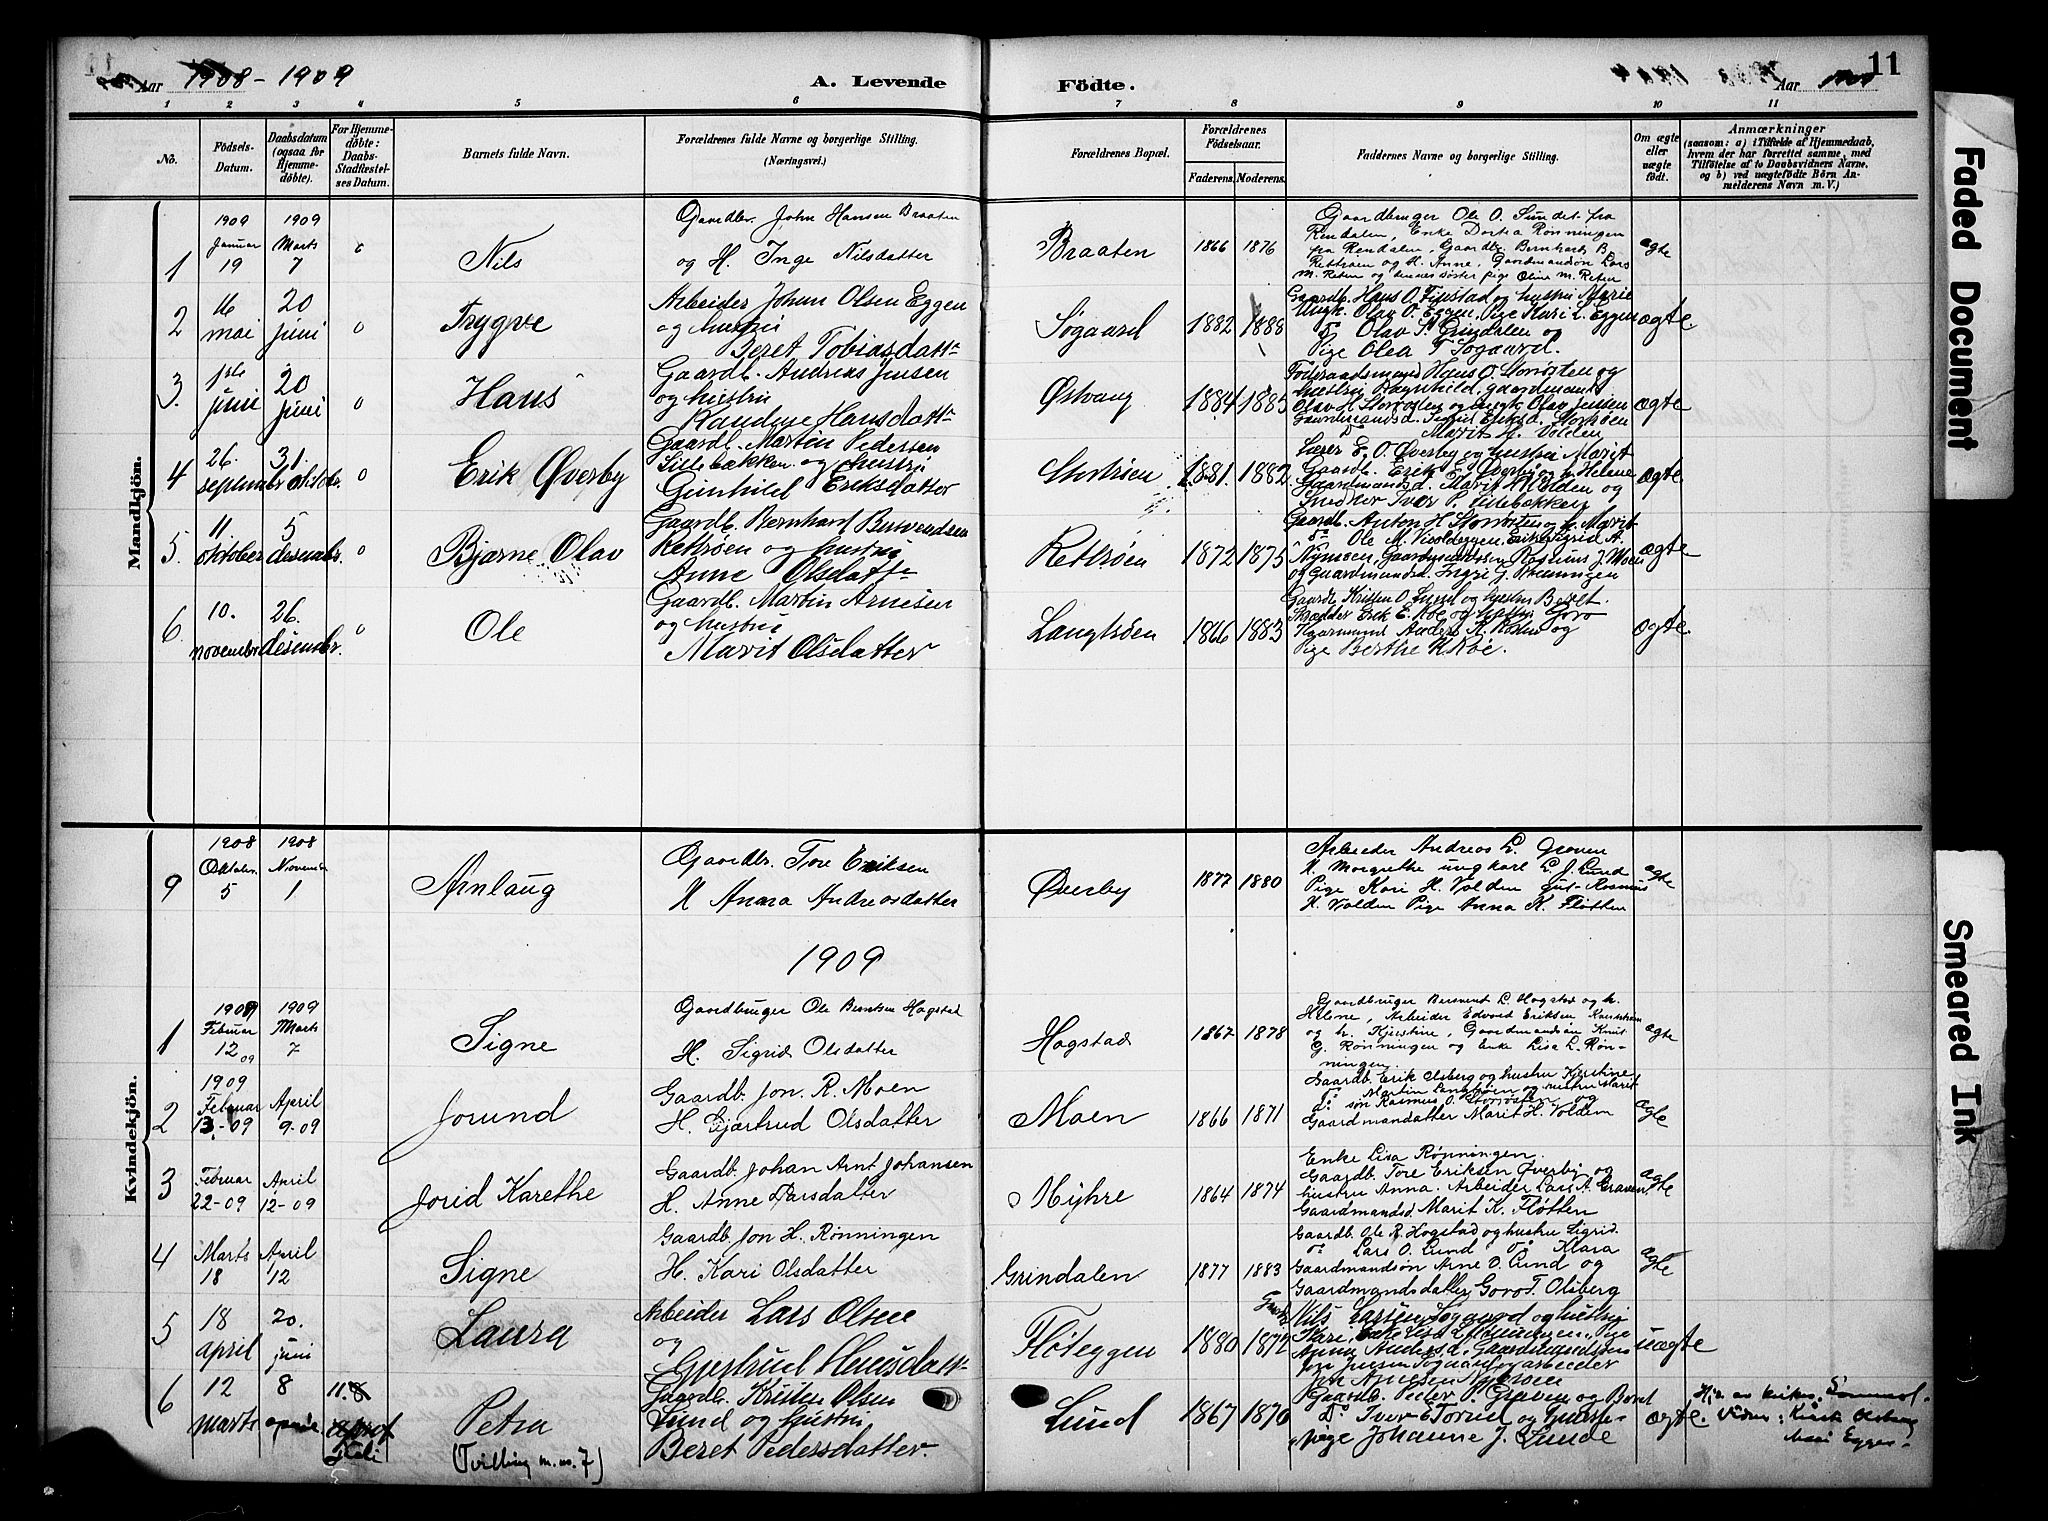 Aar 1908-1909
A. Levende
Födte.
Aar
11
1 2 3 4 5 6 7 8 9 10 11
No.
Födsels-Datum.
Daabsdatum (ogsaa for Hjemmedöbte).
For Hjemmedöbte: Daabs-Stadfæstelses Datum.
Barnets fulde Navn.
Forældrenes fulde Navne og borgerlige Stilling. (Næringsvei.)
Forældrenes Bopæl.
Forældrenes Födselsaar.
Faderens. Moderens.
Faddernes Navne og borgerlige Stilling.
Om ægte eller uægte födt.
Anmærkninger
(saasom: a) i Tilfælde af Hjemmedaab, hvem der har forrettet samme, med Tilföielse af to Daabsvidners Navne, og b) ved uægtefödte Börn Anmelderens Navn m. V.)
Mandkjön.
1
1909 Januar 19
1909 Marts 7
Nils
Gaardbr. John Hansen Braaten
og H. Inge Nilsdatter
Braaten
1866 1876
Gaardbruger Ole O. Sundet fra
Rendalen, Enke Dortea Rønningen
fra Rendalen, Gaardbr. Bernhard B.
Rettrøen og H. Anne, Gaardmandsøn Lars
M. Reten og dennes søster pige Oline M. Reten
ægte
2
16 mai
20 juni
0
Trygve
Arbeider Johan Olsen Eggen
og hustru
Beret Tobiasdattr
Søgaard
1882 1888
Gaardb. Hans O. Finstad og hustru Marie
Ungk. Olav O. Eggen, Pige Kari L. Eggen
do Olav S. Grindalen og
Pige Olea T. Søgaard.
ægte
3.
1ste juni
20 juni
0
Hans
Gaardb. Andreas Jensen
og hustru
Randine Hansdattr
Østvang
1884 1885
Føderaadsmand Hans O. Storrøsten og
hustru Ragnhild, gaardmands.
Olav H. Storrøsten og ungk. Olav Jensen
Marit H. Volden
ægte
4
26. september
31. oktobr.
0
Erik Øverby
Gaardb. Martin Pedersen
Lillebækken og hustru
Gunhild Eriksdatter
Stortrøen
1881. 1882
Lærer E. O. Øverby og hustru Marit
Gaardb. Erik E. Øverby og h. Helene
Gaardmandsd. Marit H. Volden og
Snedker Iver P. Lillebækken
ægte
5.
11 oktober
5 desembr.
0
Bjarne Olav
Gaardb. Bernhard Bersvendsen
Rettrøen og hustru
Anne Olsdattr
Rettrøen
1872 1875
Gaardb. Anton H. Storrøsten og h. Marit
do Ole M. Vooldeggen,
Nymoen, Gaardmandssøn Rasmus J. Moen
og Gaardmandsd. Ingri J. Rønningen
ægte
6.
10. november
26. desembr.
0
Ole
Gaardb. Martin Arnesen
og hustru
Marit Olsdatter
Langtrøen
1866 1883
Gaardb. Kristen O. Lund og hustru Beret.
Skrædder Erik E. Roe og hustru Goro
Anders K. og
Pige Berthe K. Roe.
ægte
Kvindekjön.
9
1908 Oktober 5
1908 November 1
Arnlaug
Gaardbr. Tore Eriksen
H Anna Andreasdatter
Øverby
1877 1880
Arbeider Andreas L. Graven
H. Margrethe ungkarl L. J. Lund
Pige Kari H. Volden gut Rasmus
H. Volden Pige Anna K. Fløtten
ægte
1909
1
1909 Februar 12 09
1909 Marts 7
Signe
Gaardbruger Ole Berntsen Hogstad
H. Sigrid Olsdatter
Hogstad
1867 1878
Gaardbruger Bersvend L. Hogstad og h.
Helene, Arbeider Edvard Eriksen
og h. Kjerstine, Gaardmandsøn Knut
G. Rønningen og enke Lisa L. Røn-
ningen.
ægte
2
1909 Februar 13-09
April 9-09
Jorund
Gaardb. Jon. R. Moen
H. Gjærtrud Olsdatter
Moen
1866 1871
Gaardb. Erik Olsberg og hustru Kjerstine
do Martin Langtrøen og hustru Marit
do søn Rasmus O. Storrøsten og
Gaardmandatter Marit H. Volden
ægte
3
Februar 22-09
April 12-09
Jorid Karethe
Gaardb. Johan Arnt Johansen
H. Anne Larsdatter
Myhre
1864 1874
Enke Lisa Rønningen.
Gaardb. Tore Eriksen Øverby og
hustru Anna. Arbeider Lars A. Graven.
Gaardmandsd. Marit K. Fløtten
ægte
4
Marts 18
April 12
Signe
Gaardb. Jon H. Rønningen
H. Kari Olsdatter
Grindalen
1877 1883
Gaardb. Ole B. Hogstad og hustru Sigrid.
do Lars O. Lund do Klara
Gaardmandsøn Arne O. Lund og
Gaardmandsdatter Goro T. Olsberg
ægte
5
18 april
20. juni
Laura
Arbeider Lars Olsen
og
Gjertrud Hansdattr
Fløteggen
1880 1872
Gaardb. Nils Larsen Søgaard og hustru
Kari, Enke Lisa L. Rønningen, Pige
Anna Andersd., Gaardmandssøn
Jon Jensen Søgaard og arbeider
Jon Arnesen
uægte
6
12 marts
8 april
11. 8
Juli
Petra
(Tvilling m. no. 7)
Gaardb. Kristen Olsen
Lund og hustru
Beret Pedersdatter.
Lund
1867 1870
Gaardb. Peder P. Graven og Berit
do Iver E. Torrud og
Pige Johanne J. Lunde
ægte.
Hj. av kirkes.
Vidner: Erik Olsberg
Mari Eggen
Faded Document
Smeared Ink